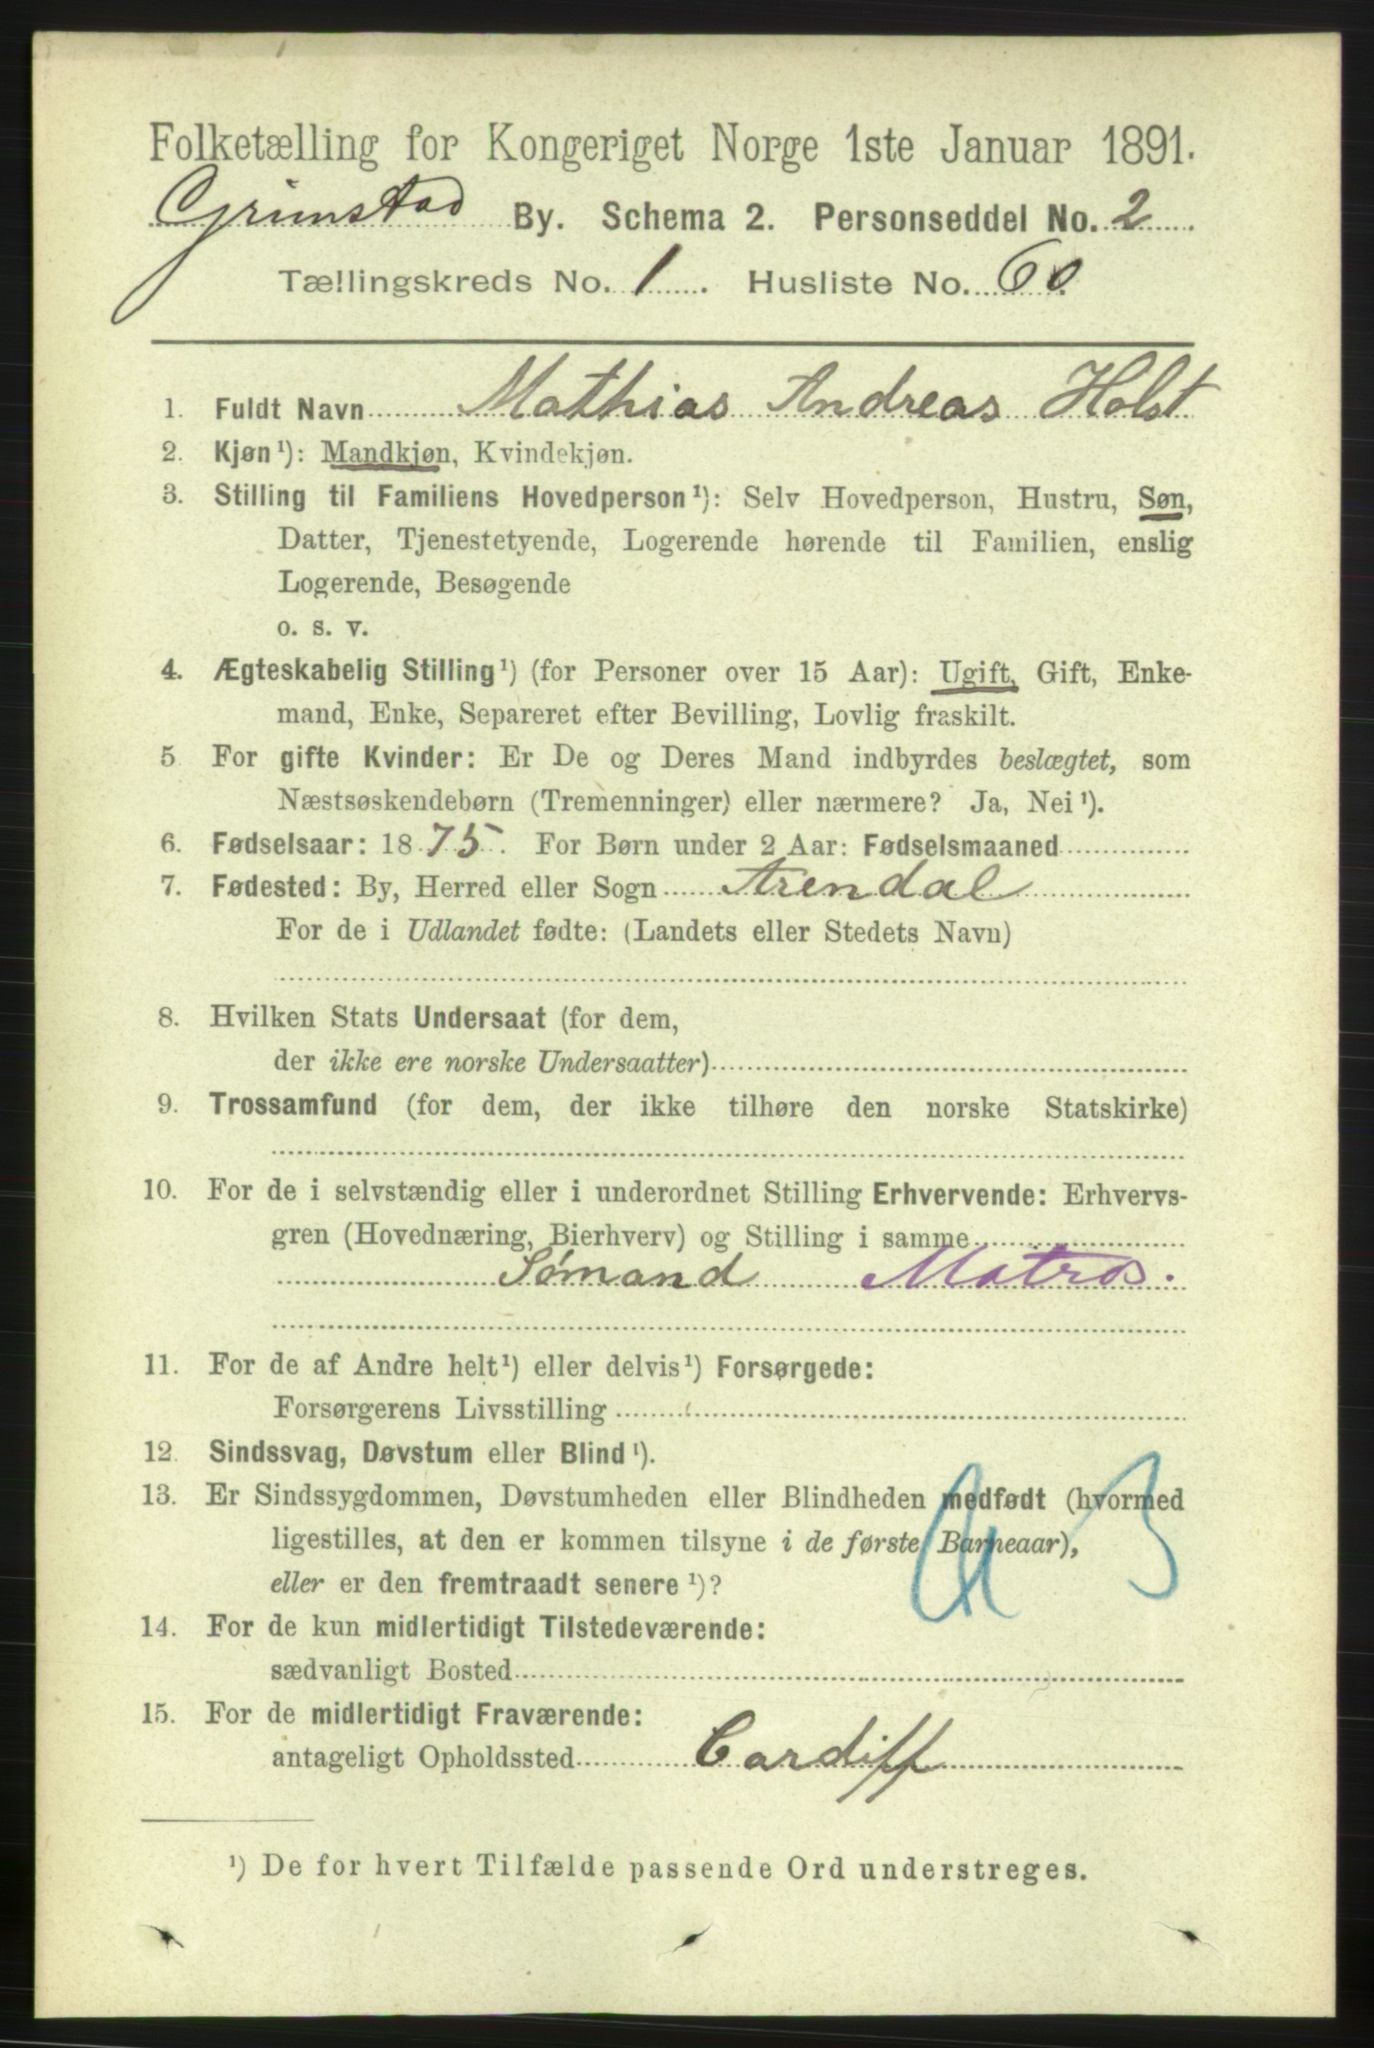 Folketælling for Kongeriget Norge 1ste Januar 1891.
Grimstad By. Schema 2. Personseddel No. 2
Tællingskreds No. 1. Husliste No. 60.
1. Fuldt Navn Mathias Andreas Holst
2. Kjøn¹): Mandkjøn, Kvindekjøn.
3. Stilling til Familiens Hovedperson¹): Selv Hovedperson, Hustru, Søn,
Datter, Tjenestetyende, Logerende hørende til Familien, enslig
Logerende, Besøgende
o. s. v.
4. Ægteskabelig Stilling¹) (for Personer over 15 Aar): Ugift, Gift, Enke-
mand, Enke, Separeret efter Bevilling, Lovlig fraskilt.
5 For gifte Kvinder: Er De og Deres Mand indbyrdes beslægtet, som
Næstsøskendebørn (Tremenninger) eller nærmere? Ja, Nei¹).
6. Fødselsaar: 1875. For Børn under 2 Aar: Fødselsmaaned
7. Fødested: By, Herred eller Sogn Arendal
For de i Udlandet fødte: (Landets eller Stedets Navn)
8. Hvilken Stats Undersaat (for dem,
der ikke ere norske Undersaatter)
9. Trossamfund (for dem, der ikke tilhøre den norske Statskirke)
10. For de i selvstændig eller i underordnet Stilling Erhvervende: Erhvervs-
gren (Hovednæring, Bierhverv) og Stilling i samme
Sømand Matros.
11. For de af Andre helt¹) eller delvis¹) Forsørgede:
Forsørgerens Livsstilling
12. Sindssvag, Døvstum eller Blind¹).
13. Er Sindssygdommen, Døvstumheden eller Blindheden medfødt (hvormed
ligestilles, at den er kommen tilsyne i de første Barneaar),
eller er den fremtraadt senere¹)?
14. For de kun midlertidigt Tilstedeværende:
sædvanligt Bosted
15. For de midlertidigt Fraværende:
antageligt Opholdssted Cardiff
¹) De for hvert Tilfælde passende Ord understreges.